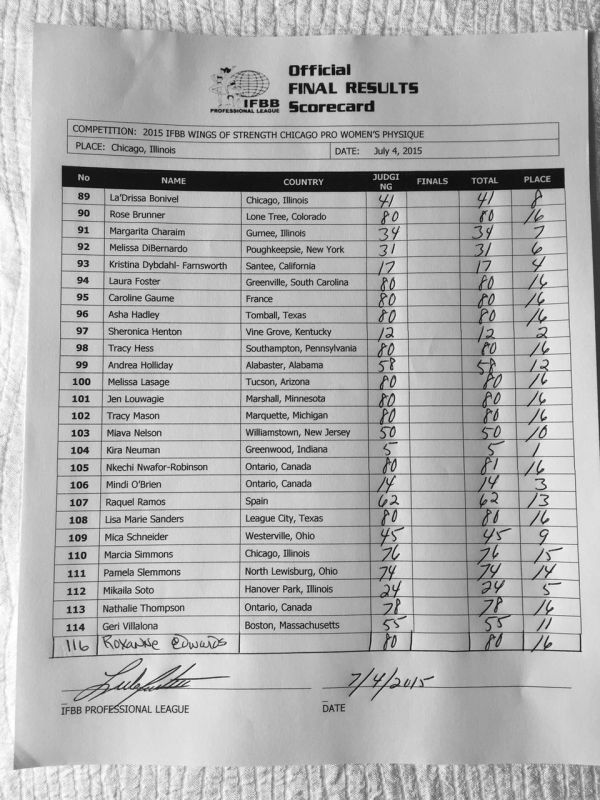 Official
FINAL RESULTS
Scorecard
IFBB
PROFESSIONAL LEAGUE
COMPETITION: 2015 IFBB WINGS OF STRENGTH CHICAGO PRO WOMEN'S PHYSIQUE
PLACE: Chicago, Illinois DATE: July 4, 2015
No NAME COUNTRY JUDGING FINALS TOTAL PLACE
89 La'Drissa Bonivel Chicago, Illinois 41 41 8
90 Rose Brunner Lone Tree, Colorado 80 80 16
91 Margarita Charaim Gurnee, Illinois 34 34 7
92 Melissa DiBernardo Poughkeepsie, New York 31 31 6
93 Kristina Dybdahl- Farnsworth Santee, California 17 17 4
94 Laura Foster Greenville, South Carolina 80 80 16
95 Caroline Gaume France 80 80 16
96 Asha Hadley Tomball, Texas 80 80 16
97 Sheronica Henton Vine Grove, Kentucky 12 12 2
98 Tracy Hess Southampton, Pennsylvania 80 80 16
99 Andrea Holliday Alabaster, Alabama 58 58 12
100 Melissa Lasage Tucson, Arizona 80 80 16
101 Jen Louwagie Marshall, Minnesota 80 80 16
102 Tracy Mason Marquette, Michigan 80 80 16
103 Miava Nelson Williamstown, New Jersey 50 50 10
104 Kira Neuman Greenwood, Indiana 5 5 1
105 Nkechi Nwafor-Robinson Ontario, Canada 80 81 16
106 Mindi O'Brien Ontario, Canada 14 14 3
107 Raquel Ramos Spain 62 62 13
108 Lisa Marie Sanders League City, Texas 80 80 16
109 Mica Schneider Westerville, Ohio 45 45 9
110 Marcia Simmons Chicago, Illinois 76 76 15
111 Pamela Slemmons North Lewisburg, Ohio 74 74 14
112 Mikaila Soto Hanover Park, Illinois 24 24 5
113 Nathalie Thompson Ontario, Canada 78 78 16
114 Geri Villalona Boston, Massachusetts 55 55 11
116 Roxanne Edwards 80 80 16
7/4/2015
IFBB PROFESSIONAL LEAGUE DATE